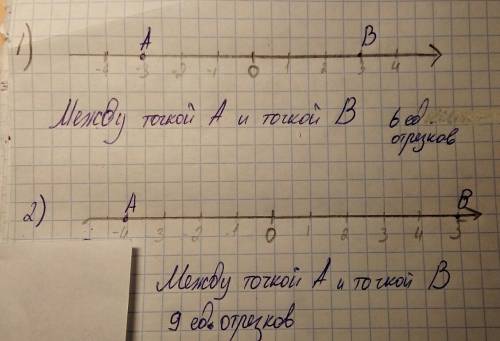 1) A B
-4 -3 -2 -1 0 1 2 3 4
Между точкой A и точкой B 6 ед
отрезков
2) A B
-4 -3 -2 -1 0 1 2 3 4 5
Между точкой A и точкой B
9 ед. отрезков